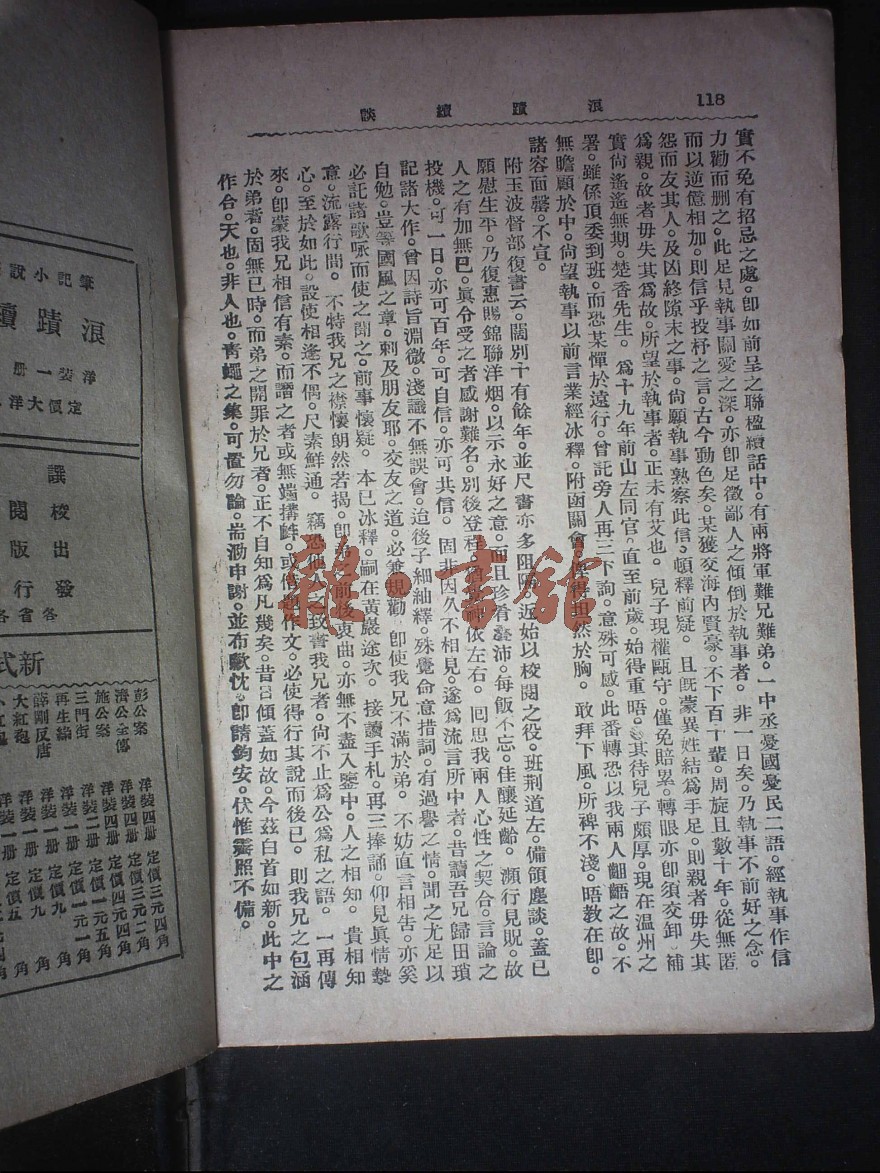 118
浪蹟續談
實不免有招忌之處。卽如前呈之聯楹續話中。有兩將軍難兄難弟。一中丞憂國憂民二語。經執事作信
力勸而删之。此足見執事關愛之深。亦卽足徵鄙人之傾倒於執事者。非一日矣。乃執事不前好之念。
而以逆億相加。則信乎投杼之言。古今動色矣。某獲交海內賢豪。不下百十輩。周旋且數十年。從無匿
怨而友其人。及凶終隙末之事。尙願執事熟察此信。頓釋前疑。且旣蒙異姓結爲手足。則親者毋失其
爲親。故者毋失其爲故。所望於執事者。正未有艾也。兒子現權甌守。僅免賠累。轉眼亦卽須交卸。補
實尙遙遙無期。楚香先生。爲十九年前山左同官。直至前歲。始得重晤。其待兒子頗厚。現在温州之
署。雖係頂委到班。而恐某憚於遠行。曾託旁人再三下詢。意殊可感。此番轉恐以我兩人齟齬之故。不
無瞻顧於中。尙望執事以前言業經冰釋。附函關會。俾得坦然於胸。敢拜下風。所裨不淺。晤敎在卽。
諸容面罄。不宣。
附玉波督部復書云。闊別十有餘年。並尺書亦多阻隔。近始以校閱之役。班荆道左。備領塵談。蓋已
願慰生平。乃復惠賜錦聯洋烟。以示永好之意。而且珍肴臺沛。每飯不忘。佳釀延齡。瀕行見貺。故
人之有加無已。眞令受之者感謝難名。別後登程。神依左右。囘思我兩人心性之契合。言論之
投機。可一日。亦可百年。可自信。亦可共信。固非因久不相見。遂爲流言所中者。昔讀吾兄歸田瑣
記諸大作。曾因詩旨淵微。淺識不無誤會。迨後子細紬繹。殊覺命意措詞。有過譽之情。聞之尤足以
自勉。豈等國風之章。刺及朋友耶。交友之道。必兼規勸。卽使我兄不滿於弟。不妨直言相吿。亦奚
必託諸歌咏而使之聞之。前事懷疑。本已冰釋。嗣在黃巖途次。接讀手札。再三捧誦。仰見眞情摯
意。流露行間。不特我兄之襟懷朗然若揭。卽弟之前後衷曲。亦無不盡入鑒中。人之相知。貴相知
心。至於如此。設使相逢不偶。尺素鮮通。竊恐傾人之致書我兄者。尙不止爲公爲私之語。一再傳
來。卽蒙我兄相信有素。而譖之者或無端搆衅。或借題作文。必使得行其說而後已。則我兄之包涵
於弟者。固無已時。而弟之開罪於兄者。正不自知爲凡幾矣。昔日傾蓋如故。今茲白首如新。此中之
作合。天也。非人也。靑蠅之集。可置勿論。耑泐申謝。並布歉忱。卽請鈞安。伏惟霽照不備。
雜·書館
筆記小說
浪蹟續
洋裝一册
定價大洋
譔
校閱
出版
發行
各省各
新式
彭公案 洋裝四册 定價三元四角
濟公全傳 洋裝四册 定價三元二角
施公案 洋裝四册 定價四元四角
三門街 洋裝二册 定價一元五角
再生緣 洋裝一册 定價一元一角
薛剛反唐 洋裝一册 定價九角
大紅袍 洋裝一册 定價九角
洋裝一册 定價五角